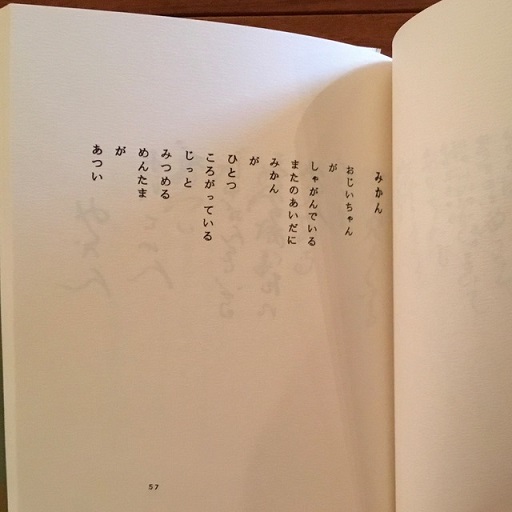 みかん
おじいちゃん
が
しゃがんでいる
またのあいだに
みかん
が
ひとつ
ころがっている
じっと
みつめる
めんたま
が
あつい
57